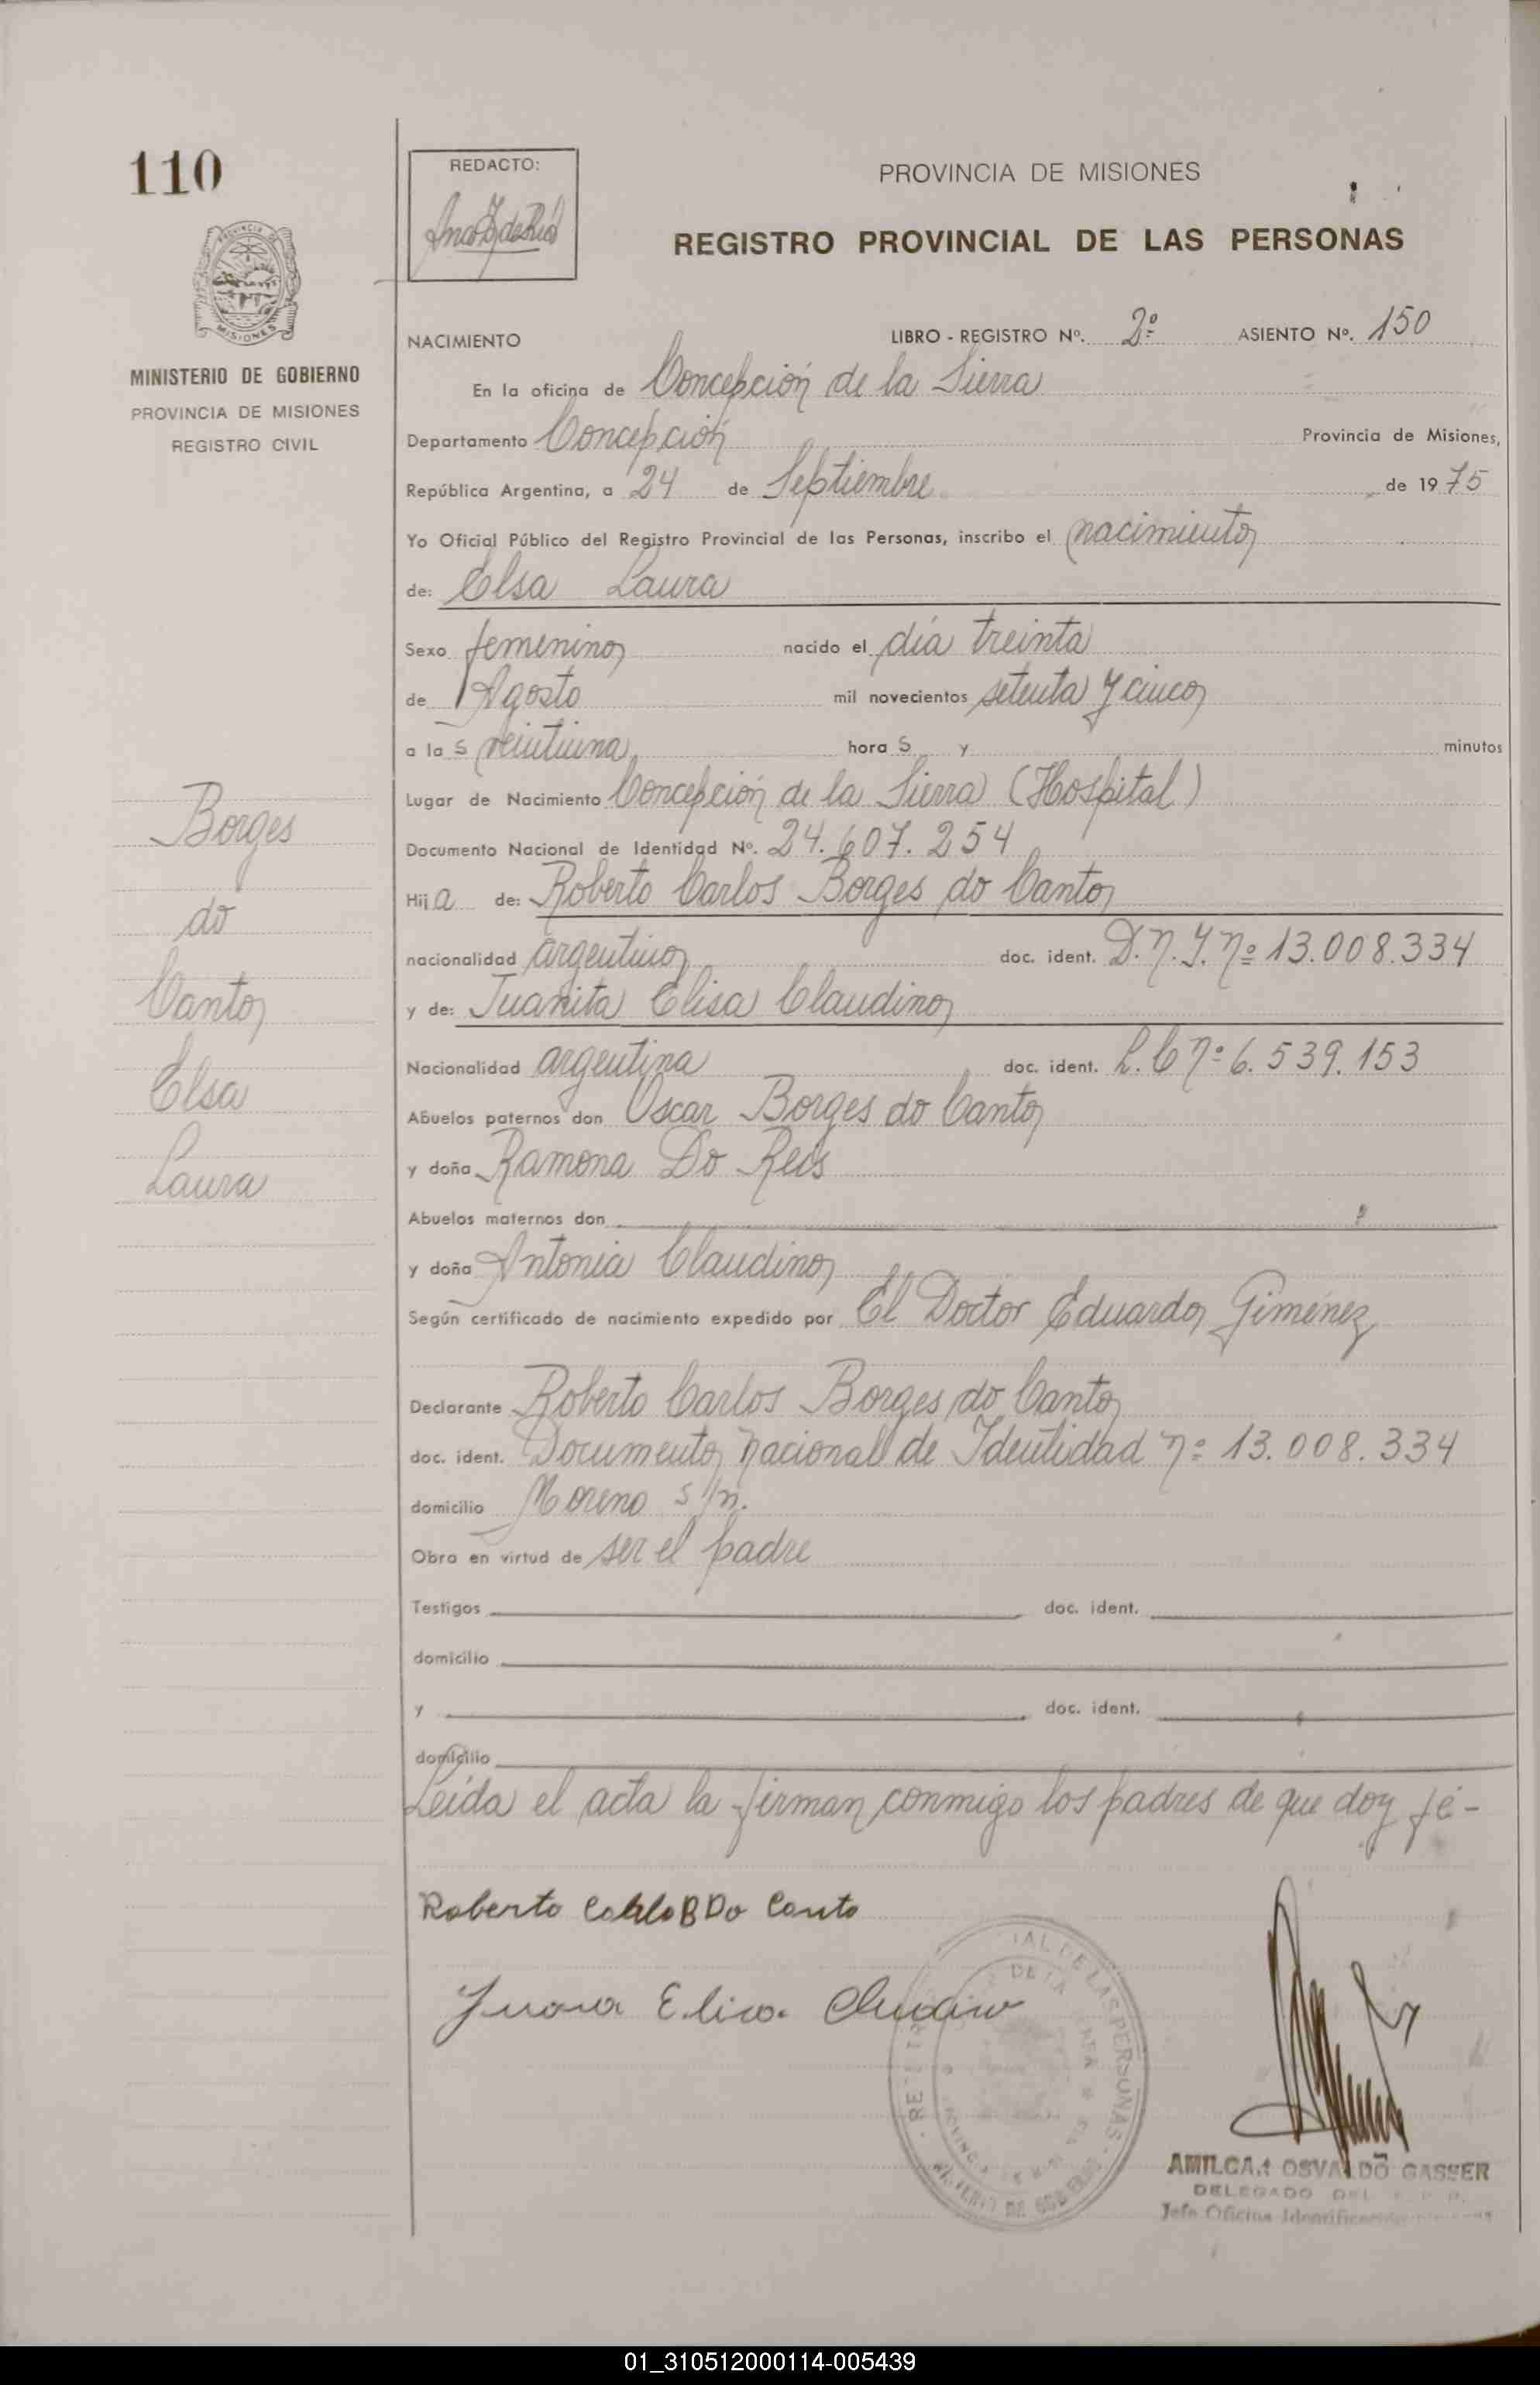 110
REDACTO:
PROVINCIA DE MISIONES
REGISTRO PROVINCIAL DE LAS PERSONAS
MISIONES
MINISTERIO DE GOBIERNO
PROVINCIA DE MISIONES
REGISTRO CIVIL
NACIMIENTO LIBRO - REGISTRO Nº. 2º ASIENTO Nº. 150
En la oficina de Concepción de la Sierra
Departamento Concepción Provincia de Misiones,
República Argentina, a 24 de Septiembre de 1975
Yo Oficial Público del Registro Provincial de las Personas, inscribo el nacimiento
de: Elsa Laura
Sexo femenino nacido el día treinta
de Agosto mil novecientos setenta y cinco
a la s veintiuna hora s y minutos
Lugar de Nacimiento Concepción de la Sierra (Hospital)
Documento Nacional de Identidad Nº. 24.607.254
Hij a de: Roberto Carlos Borges do Canto
nacionalidad argentino doc. ident. D.N.I. nº 13.008.334
y de: Juanita Elisa Claudino
Nacionalidad argentina doc. ident. L.C nº 6.539.153
Abuelos paternos don Oscar Borges do Canto
y doña Ramona Do Reis
Abuelos maternos don
y doña Antonia Claudino
Según certificado de nacimiento expedido por El Doctor Eduardo Giménez
Declarante Roberto Carlos Borges do Canto
doc. ident. Documento Nacional de Identidad nº 13.008.334
domicilio Moreno s/n.
Obra en virtud de ser el padre
Testigos doc. ident.
domicilio
y doc. ident.
domicilio
Leída el acta la firman conmigo los padres de que doy fé-
Borges
do
Canto
Elsa
Laura
Roberto Carlo B Do Canto
Juana Elisa Claudino
AMILCAR OSVALDO GASSER
DELEGADO DEL
Jefe Oficina
01_310512000114-005439